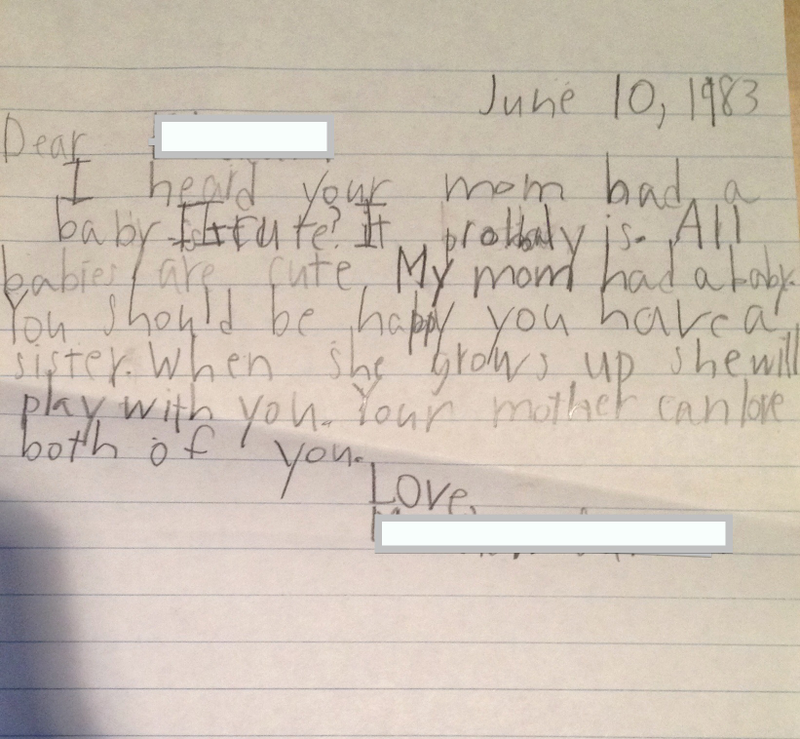 June 10, 1983
Dear
I heard your mom had a
baby. Is it cute? It probbaly is. All
babies are cute. My mom had a baby.
You should be happy you have a
sister. When she grows up she will
play with you. Your mother can love
both of you.
Love,